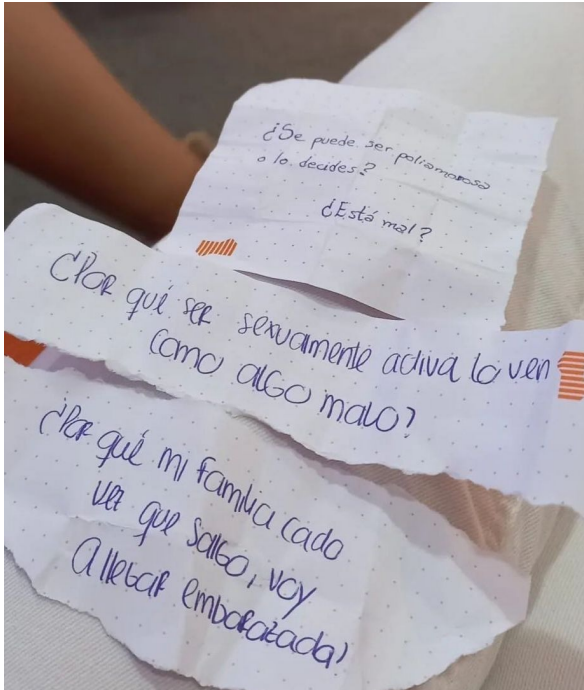 ¿Se puede ser poliamoroso
o lo decides?
¿Está mal?
¿Por qué ser sexuamente activa lo ven
como algo malo?
¿Por qué mi familia cada
vez que salgo, voy
a llegar embarazada?